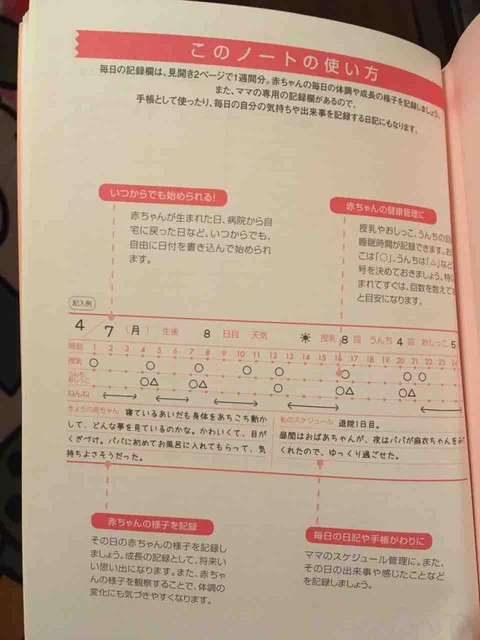 このノートの使い方
毎日の記録欄は、見開き2ページで1週間分。赤ちゃんの毎日の体調や成長の様子を記録しましょう。
また、ママの専用の記録欄があるので、
手帳として使ったり、毎日の自分の気持ちや出来事を記録する日記にもなります。
いつからでも始められる!
赤ちゃんが生まれた日、病院から自
宅に戻った日など、いつからでも、
自由に日付を書き込んで始められ
ます。
赤ちゃんの健康管理に
授乳やおしっこ、うんちの回
睡眠時間が記録できます。お
こは「○」、うんちは「△」など
号を決めておきましょう。特に
まれてすぐは、回数を数えて
と目安になります。
記入例
4/7(月) 生後 8 日目 天気 ☀ 授乳 8 回 うんち 4 回 おしっこ 5
時刻 1 2 3 4 5 6 7 8 9 10 11 12 13 14 15 16 17 18 19 20 21 22 23 24
授乳 ○ ○ ○ ○ ○ ○ ○ ○
うんち
おしっこ ○△ ○△ ○ ○△ ○△
ねんね
きょうの赤ちゃん 寝ているあいだも身体をあちこち動か
して、どんな夢を見ているのかな。かわいくて、目が
くぎづけ。パパに初めてお風呂に入れてもらって、気
持ちよさそうだった。
私のスケジュール 退院1日目。
昼間はおばあちゃんが、夜はパパが麻衣ちゃんを
くれたので、ゆっくり過ごせた。
赤ちゃんの様子を記録
その日の赤ちゃんの様子を記録し
ましょう。成長の記録として、将来い
い思い出になります。また、赤ちゃ
んの様子を観察することで、体調の
変化にも気づきやすくなります。
毎日の日記や手帳がわりに
ママのスケジュール管理に。また、
その日の出来事や感じたことなど
を記録しましょう。